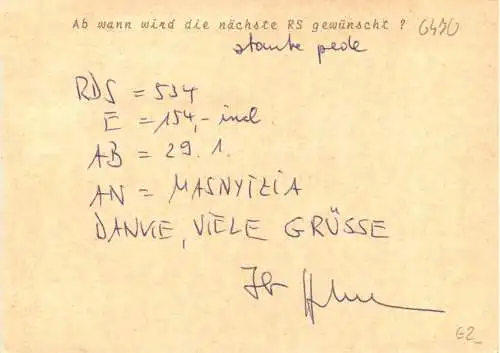 Ab wann wird die nächste RS gewünscht ? 6470
stante pede
RDS = 534
E = 154,- incl.
AB = 29. 1.
AN = MASNYTZIA
DANKE, VIELE GRÜSSE
Ihr
62